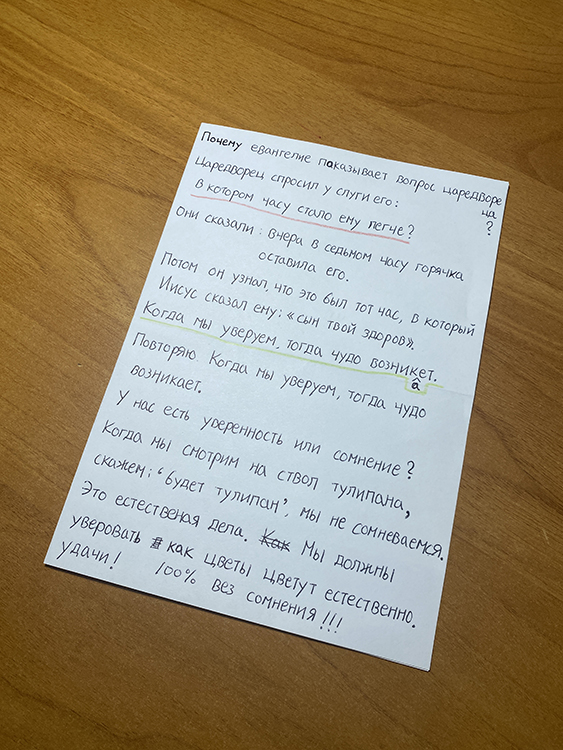 Почему евангелие показывает вопрос царедворе
ца?
Царедворец спросил у слуги его:
в котором часу стало ему легче?
Они сказали: вчера в седьмом часу горячка
оставила его.
Потом он узнал, что это был тот час, в который
Иисус сказал ему: «сын твой здоров».
Когда мы уверуем, тогда чудо возникает.
Повторяю. Когда мы уверуем, тогда чудо
возникает.
У нас есть уверенность или сомнение?
Когда мы смотрим на ствол тулипана,
скажем: 'будет тулипан', мы не сомневаемся.
Это естественая дела. Как Мы должны
уверовать как цветы цветут естественно.
удачи! 100% без сомнения!!!